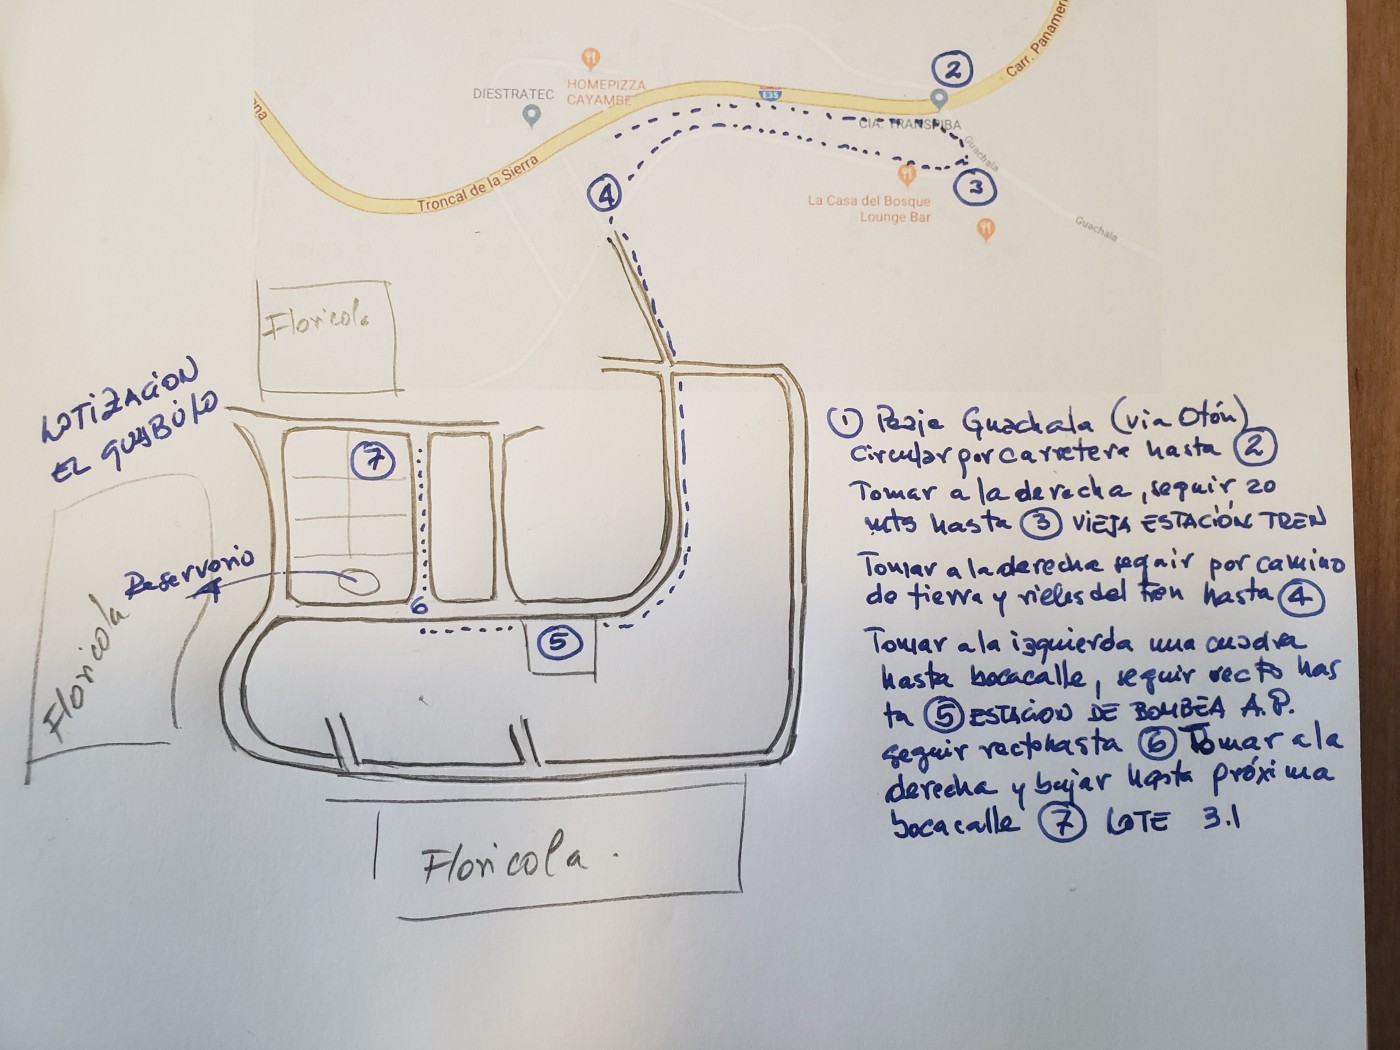 Carr. Panamer
2
HOMEPIZZA
CAYAMBE
DIESTRATEC
E35
ona
CIA. TRANSPIBA
Guachala
Troncal de la Sierra
4
3
La Casa del Bosque
Lounge Bar
Guachala
Floricola
LOTIZACION
EL GUABULO
7
Reservorio
6
5
Floricola
Floricola.
① Peaje Guachala (via Otón)
circular por carretera hasta ②
Tomar a la derecha, seguir 20
mts hasta ③ VIEJA ESTACIÓN TREN
Tomar a la derecha seguir por camino
de tierra y rieles del tren hasta ④
Tomar a la izquierda una cuadra
hasta bocacalle, seguir recto has
ta ⑤ ESTACION DE BOMBEA A.P.
seguir recto hasta ⑥ Tomar a la
derecha y bajar hasta próxima
bocacalle ⑦ LOTE 3.1